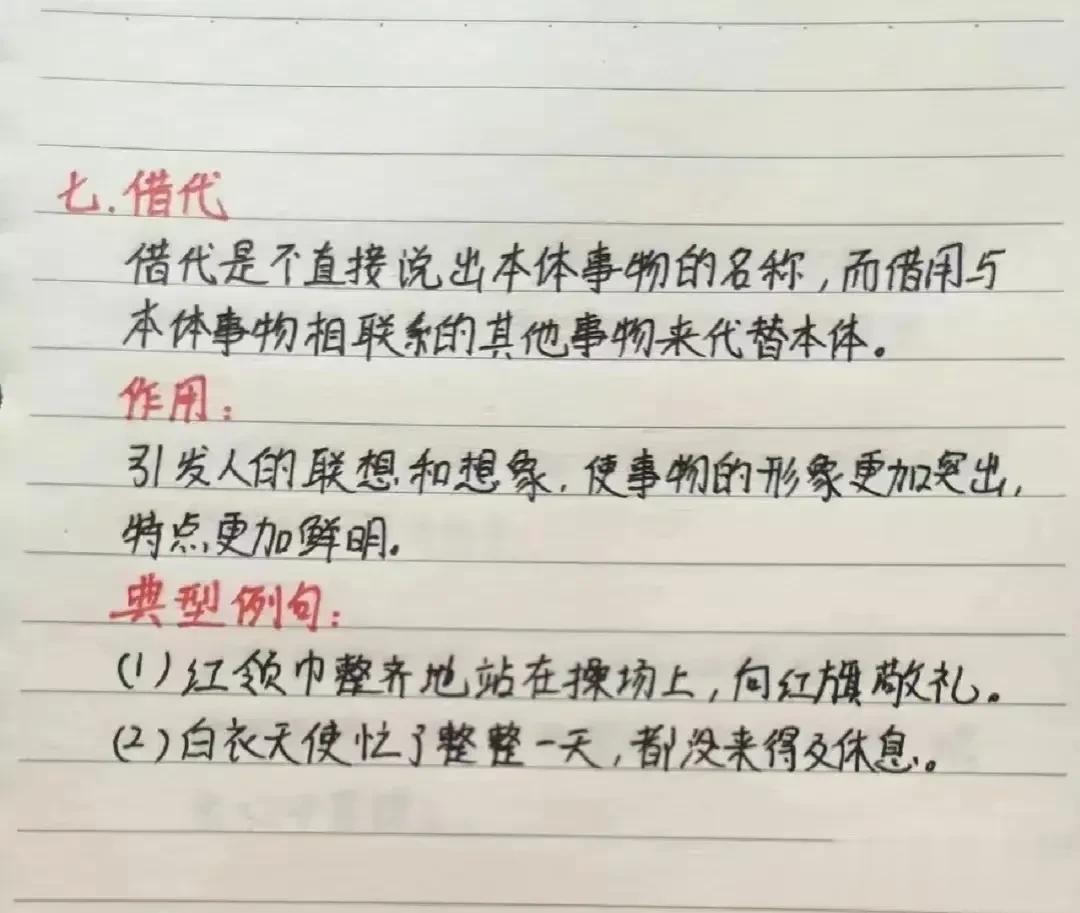 七.借代
借代是不直接说出本体事物的名称,而借用与
本体事物相联系的其他事物来代替本体。
作用:
引发人的联想和想象,使事物的形象更加突出,
特点更加鲜明。
典型例句:
(1)红领巾整齐地站在操场上,向红旗敬礼。
(2)白衣天使忙了整整一天,都没来得及休息。